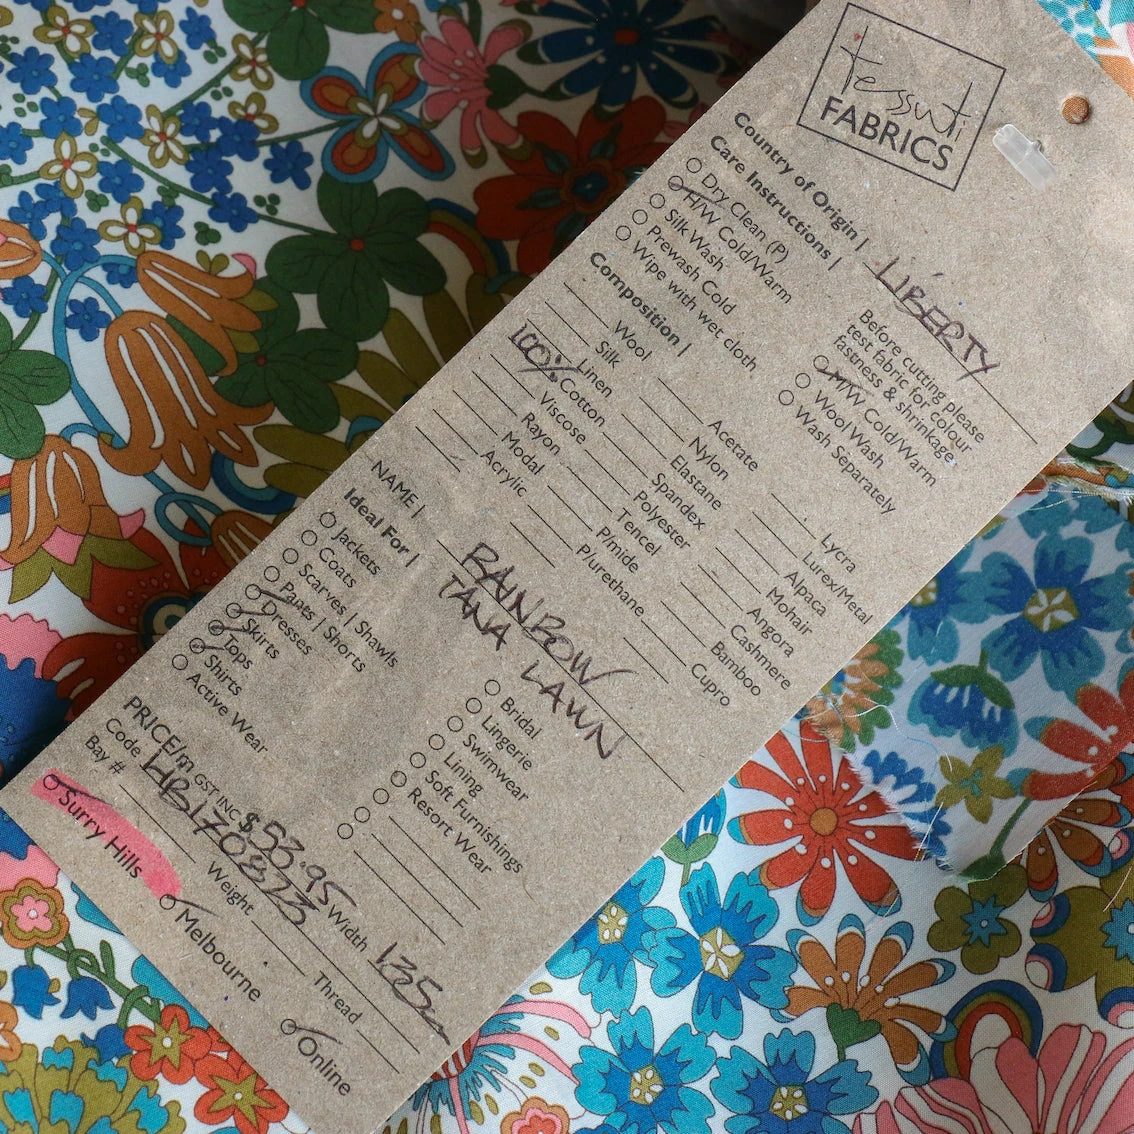 tessuti
FABRICS
Country of Origin | LIBERTY
Care Instructions |
Dry Clean (P)
H/W Cold/Warm
Silk Wash
Prewash Cold
Wipe with wet cloth
Before cutting please
test fabric for colour
fastness & shrinkage
M/W Cold/Warm
Wool Wash
Wash Separately
Composition |
Wool
Silk
Linen
100% Cotton
Viscose
Rayon
Modal
Acrylic
Acetate
Nylon
Elastane
Spandex
Polyester
Tencel
P/mide
P/urethane
Lycra
Lurex/Metal
Alpaca
Mohair
Angora
Cashmere
Bamboo
Cupro
NAME | RAINBOW
TANA LAWN
Ideal For |
Jackets
Coats
Scarves | Shawls
Pants | Shorts
Dresses
Skirts
Tops
Shirts
Active Wear
Bridal
Lingerie
Swimwear
Lining
Soft Furnishings
Resort Wear
PRICE/m GST INC $53.95 Width 135
Code HB170823 Weight Thread
Bay #
Surry Hills Melbourne Online